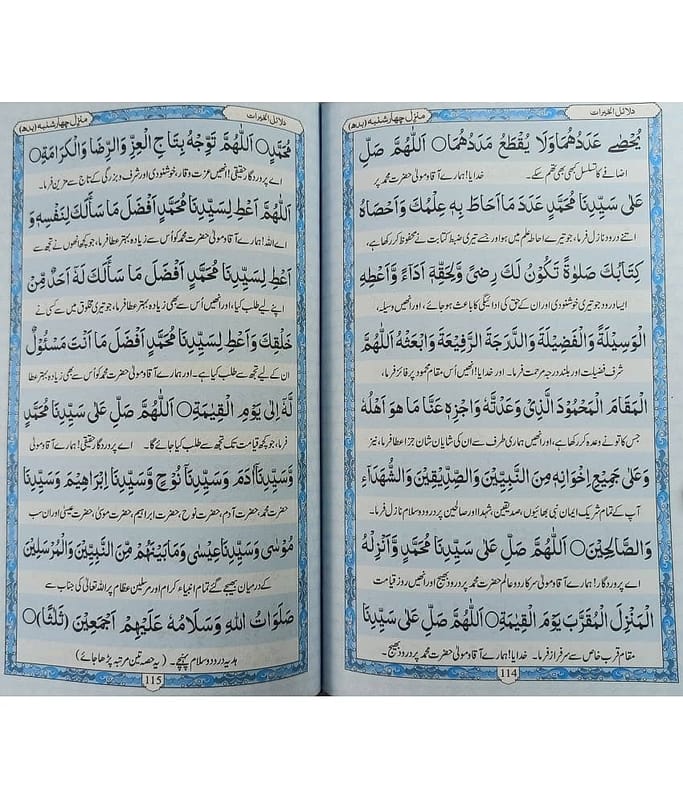 منزل چهارشنبه (بدھ)
دلائل الخیرات
یُحْصٰے عَدَدُهُمَا وَلَا یُقْطَعُ مَدَدُهُمَا○ اَللّٰهُمَّ صَلِّ
اضافے کا تسلسل کبھی بھی ختم نہ ہو سکے۔ خدایا! ہمارے آقا و مولیٰ حضرت محمد پر
عَلٰی سَیِّدِنَا مُحَمَّدٍ عَدَدَ مَا اَحَاطَ بِهٖ عِلْمُكَ وَ اَحْصَاهُ
اتنے درود نازل فرما، جو تیرے احاطۂ علم میں ہو اور جسے تیری ضبط کتابت نے محفوظ کر رکھا ہے،
كِتَابُكَ صَلٰوةً تَكُوْنُ لَكَ رِضًی وَّلِحَقِّهٖ اَدَاءً وَّاَعْطِهِ
ایسا درود جو تیری خوشنودی اور ان کے حق کی ادائیگی کا باعث ہو جائے، اور انھیں وسیلہ،
الْوَسِیْلَةَ وَالْفَضِیْلَةَ وَالدَّرَجَةَ الرَّفِیْعَةَ وَابْعَثْهُ اَللّٰهُمَّ
شرف فضیلت اور بلند درجہ مرحمت فرما۔ اور خدایا! انھیں اُس مقام محمود پر فائز فرما،
الْمَقَامَ الْمَحْمُوْدَ الَّذِیْ وَعَدْتَّهٗ وَاجْزِهٖ عَنَّا مَا هُوَ اَهْلُهٗ
جس کا تو نے وعدہ کر رکھا ہے، اور انھیں ہماری طرف سے ان کی شایان شان جزا عطا فرما، نیز
وَعَلٰی جَمِیْعِ اِخْوَانِهٖ مِنَ النَّبِیِّیْنَ وَالصِّدِّیْقِیْنَ وَالشُّهَدَآءِ
آپ کے تمام شریک ایمان نبی بھائیوں، صدیقین، شہدا اور صالحین پر درود و سلام نازل فرما۔
وَالصَّالِحِیْنَ○ اَللّٰهُمَّ صَلِّ عَلٰی سَیِّدِنَا مُحَمَّدٍ وَّاَنْزِلْهُ
اے پروردگار! ہمارے آقا و مولیٰ سرکار دو عالم حضرت محمد پر درود بھیج اور انھیں روز قیامت
الْمَنْزِلَ الْمُقَرَّبَ یَوْمَ الْقِیٰمَةِ○ اَللّٰهُمَّ صَلِّ عَلٰی سَیِّدِنَا
مقام قرب خاص سے سرفراز فرما۔ خدایا! ہمارے آقا و مولیٰ حضرت محمد پر درود بھیج۔
114
منزل چهارشنبه (بدھ)
دلائل الخیرات
مُحَمَّدٍ○ اَللّٰهُمَّ تَوِّجْهُ بِتَاجِ الْعِزِّ وَالرِّضَا وَالْكَرَامَةِ○
اے پروردگار حقیقی! انھیں عزت و وقار، خوشنودی اور شرف و بزرگی کے تاج سے مزین فرما۔
اَللّٰهُمَّ اَعْطِ لِسَیِّدِنَا مُحَمَّدٍ اَفْضَلَ مَا سَأَلَكَ لِنَفْسِهٖ وَ
اے اللہ! ہمارے آقا و مولیٰ حضرت محمد کو اُس سے زیادہ بہتر عطا فرما، جو کچھ انھوں نے تجھ سے
اَعْطِ لِسَیِّدِنَا مُحَمَّدٍ اَفْضَلَ مَا سَأَلَكَ لَهٗ اَحَدٌ مِّنْ
اپنے لیے طلب کیا، اور انھیں اُس سے بھی زیادہ بہتر عطا فرما، جو تیری مخلوق میں کسی نے
خَلْقِكَ وَ اَعْطِ لِسَیِّدِنَا مُحَمَّدٍ اَفْضَلَ مَا اَنْتَ مَسْئُوْلٌ
ان کے لیے تجھ سے طلب کیا ہے۔ اور ہمارے آقا و مولیٰ حضرت محمد کو اُس سے بھی زیادہ بہتر عطا
لَّهٗ اِلٰی یَوْمِ الْقِیٰمَةِ○ اَللّٰهُمَّ صَلِّ عَلٰی سَیِّدِنَا مُحَمَّدٍ
فرما، جو کچھ قیامت تک تجھ سے طلب کیا جائے گا۔ اے پروردگار حقیقی! ہمارے آقا و مولیٰ
وَّسَیِّدِنَا اٰدَمَ وَ سَیِّدِنَا نُوْحٍ وَّسَیِّدِنَا اِبْرَاهِیْمَ وَسَیِّدِنَا
حضرت محمد، حضرت آدم، حضرت نوح، حضرت ابراہیم، حضرت موسیٰ، حضرت عیسیٰ اور ان سب
مُوْسٰی وَ سَیِّدِنَا عِیْسٰی وَمَا بَیْنَهُمْ مِّنَ النَّبِیِّیْنَ وَالْمُرْسَلِیْنَ
کے درمیان بھیجے گئے تمام انبیاء کرام اور مرسلین عظام پر اللہ تعالیٰ کی جناب سے
صَلَوَاتُ اللّٰهِ وَسَلَامُهٗ عَلَیْهِمْ اَجْمَعِیْنَ (ثَلٰثًا)○
ہدیۂ درود و سلام پہنچے۔ (یہ حصہ تین مرتبہ پڑھا جائے)
115